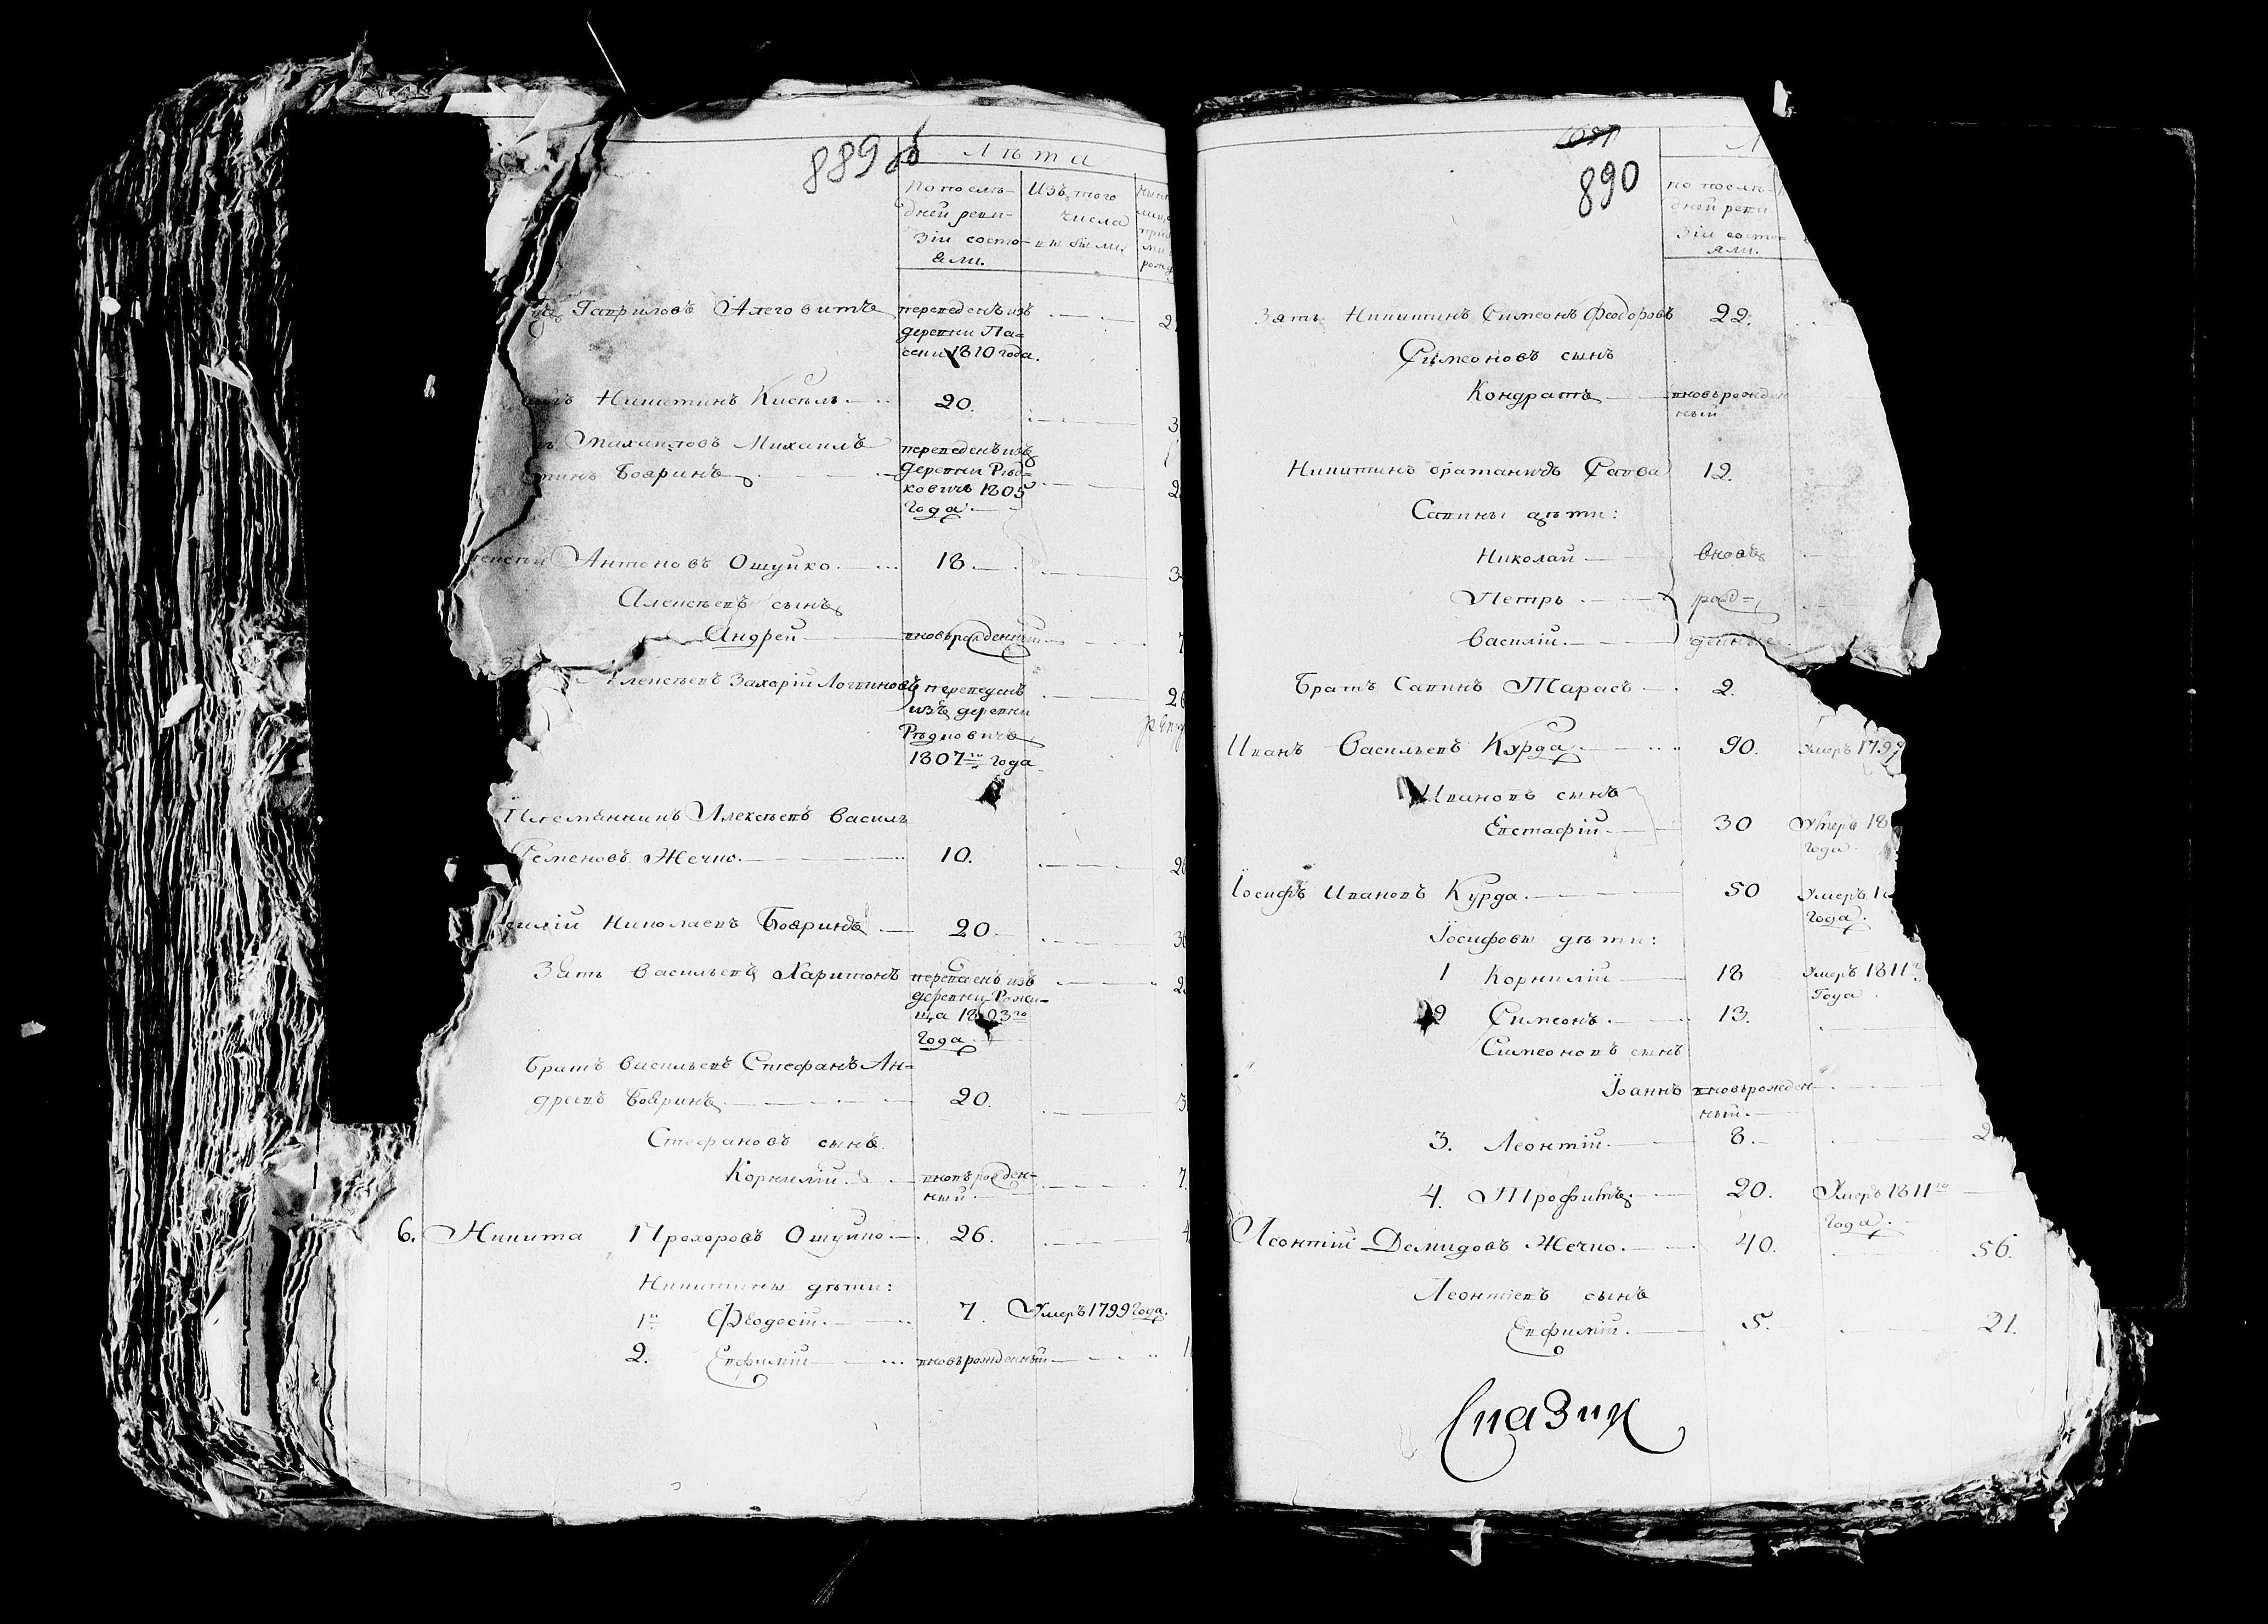 889 об
Лѣта
По послѣ-
дней реви-
зіи состо-
яли.
Изъ того
числа
выбыли
Гавриловъ Алеговитъ
переведенъ изъ
деревни Па=
секи 1810 года.
2
Никитинъ Кисѣль
20.
3
Михаиловъ Михаилъ
переведенъ изъ
Бояринъ
деревни Рѣд=
ковичъ 1805
года
2
Антоновъ Ошуйко
18
3
Алексѣевъ сынъ
Андрей
вновьрожденный
7
Алексѣевъ Захорій Логвиновъ
переведенъ
изъ деревни
Рѣдковичъ
1807го года
26
Племянникъ Алексѣевъ Василь
Семеновъ Жечко
10.
2
силій Николаевъ Бояринъ
20
30
Зять Васильевъ Харитонъ
переведенъ изъ
деревни Рожи-
ща 1803го
года
2
Братъ Васильевъ Стефанъ Ан=
дреевъ Бояринъ
20.
3
Стефановъ сынъ
Корнилій
вновьрожден-
ный
7.
6. Никита Прохоровъ Ошуйко
26.
4
Никитины дѣти:
1й Феодосій
7.
Умеръ 1799 года.
2. Евфимій
вновьрожденный
1
890
Л
по послѣ-
дней реви
зіи состо-
яли.
Зять Никитинъ Симеонъ Феодоровъ
22.
Симеоновъ сынъ
Кондратъ
вновьрожден
ный
Никитинъ братаничъ Савва
12.
Савины дѣти:
Николай
вновь
Петръ
рож=
Василій
денные
Братъ Савинъ Тарасъ
2.
Иванъ Васильевъ Курда
90.
Умеръ 1799
Ивановъ сынъ
Евстафій
30
Умеръ 18
года
Іосифъ Ивановъ Курда
50
Умеръ 1
года.
Іосифовы дѣти:
1 Корнилій
18
Умеръ 1811
года
2 Симеонъ
13.
Симеоновъ сынъ
Іоаннъ
вновьрожден-
ный
3. Леонтій
8.
2
4. Трофимъ
20.
Умеръ 1811го
года.
Леонтій Демидовъ Жечко
40.
56.
Леонтіевъ сынъ
Евфимій
5.
21.
Сказки